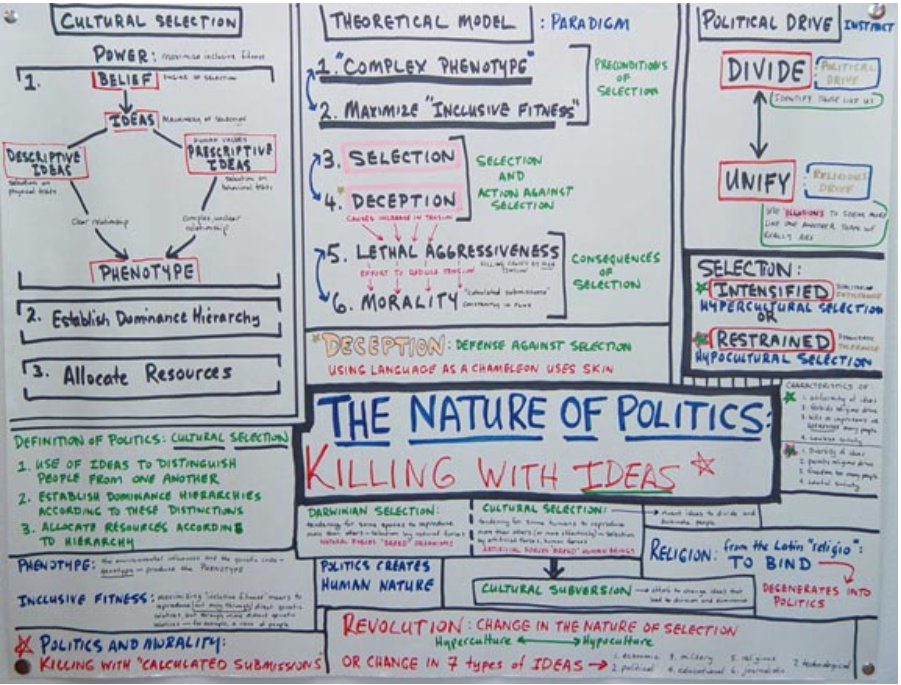 CULTURAL SELECTION
POWER: maximize inclusive fitness
1. BELIEF ENGINE OF SELECTION
IDEAS MACHINERY OF SELECTION
DESCRIPTIVE IDEAS
selection on physical traits
HUMAN VALUES
PRESCRIPTIVE IDEAS
selection on behavioral traits
Clear relationship
Complex, unclear relationship
PHENOTYPE
2. Establish Dominance Hierarchy
3. Allocate Resources
THEORETICAL MODEL : PARADIGM
1. "COMPLEX PHENOTYPE"
2. MAXIMIZE "INCLUSIVE FITNESS"
PRECONDITIONS
OF
SELECTION
3. SELECTION
4. DECEPTION
SELECTION
AND
ACTION AGAINST
SELECTION
CAUSES INCREASE IN TENSION
5. LETHAL AGGRESSIVENESS
EFFORT TO REDUCE TENSION
KILLING CAUSED BY HIGH TENSION
6. MORALITY
"calculated submissions"
constantly in flux
CONSEQUENCES
OF
SELECTION
DECEPTION: DEFENSE AGAINST SELECTION
USING LANGUAGE AS A CHAMELEON USES SKIN
POLITICAL DRIVE INSTINCT
DIVIDE : POLITICAL DRIVE
IDENTIFY THOSE LIKE US
UNIFY : RELIGIOUS DRIVE
USE ILLUSIONS TO SEEM MORE
LIKE ONE ANOTHER THAN WE
REALLY ARE
SELECTION:
INTENSIFIED
HYPERCULTURAL SELECTION
OR
RESTRAINED
HYPOCULTURAL SELECTION
CHARACTERISTICS OF:
1. uniformity of ideas
2. forbids religious drive
3. kills or imprisons or
many people
4. lawless society
1. Diversity of ideas
2. permits religious drive
3. freedom for many people
4. lawful society
THE NATURE OF POLITICS:
KILLING WITH IDEAS
DEFINITION OF POLITICS: CULTURAL SELECTION
1. USE OF IDEAS TO DISTINGUISH
PEOPLE FROM ONE ANOTHER
2. ESTABLISH DOMINANCE HIERARCHIES
ACCORDING TO THESE DISTINCTIONS
3. ALLOCATE RESOURCES ACCORDING
TO HIERARCHY
DARWINIAN SELECTION:
tendency for some species to reproduce
more than others - selection by natural forces
NATURAL FORCES "BREED" ORGANISMS
CULTURAL SELECTION:
tendency for some humans to reproduce
more than others (or more effectively) - selection
by artificial forces, human forces
ARTIFICIAL FORCES "BREED" HUMAN BEINGS
invent ideas to divide and
dominate people
CULTURAL SUBVERSION
efforts to change ideas that
lead to division and dominance
RELIGION: from the Latin "religio":
TO BIND
DEGENERATES INTO
POLITICS
PHENOTYPE: the environmental influences and the genetic code -
genotype - produce the PHENOTYPE
POLITICS CREATES
HUMAN NATURE
INCLUSIVE FITNESS: maximizing "inclusive fitness" means to
reproduce not only through direct genetic
relatives, but through more distant genetic
relatives - for example, a race of people
POLITICS AND MORALITY:
KILLING WITH "CALCULATED SUBMISSIONS"
REVOLUTION: CHANGE IN THE NATURE OF SELECTION
Hyperculture Hypoculture
OR CHANGE IN 7 types of IDEAS
1. economic 3. military 5. religious 7. technological
2. political 4. educational 6. journalistic